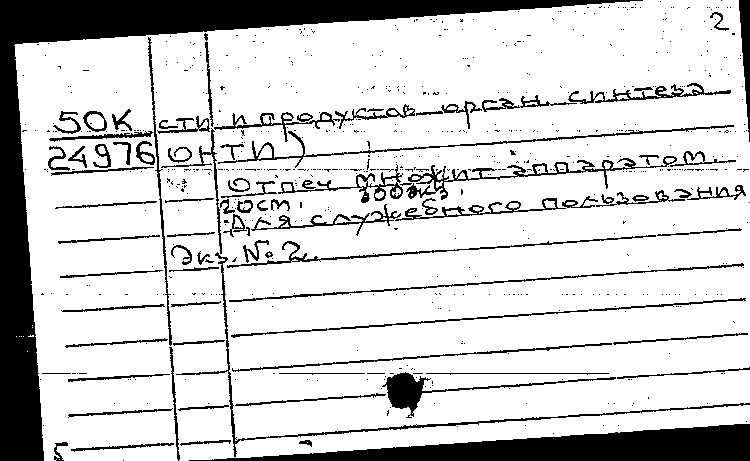 2
50К сти и продуктов орган. синтеза
24976 ОНТИ)
Отпеч множит аппаратом.
20см. 300экз.
Для служебного пользования
Экз. № 2.